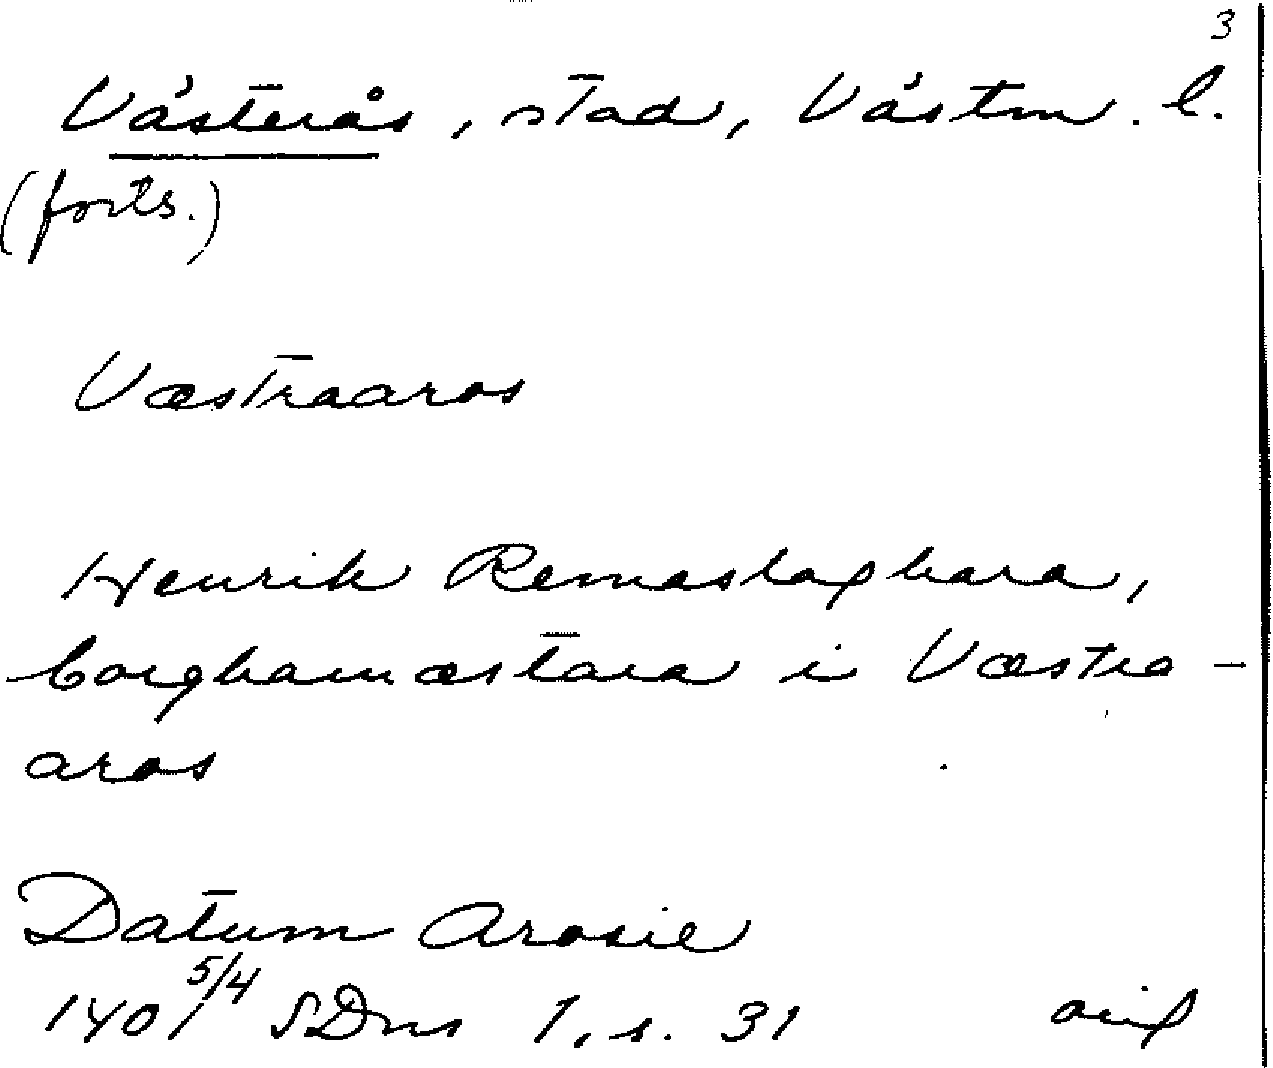 3
Västerås, stad, Västm. l.
(forts.)
Væstraaros
Henrik Remaslaghara,
borghamæstara i Væstra-
aros
Datum Arosie
1401 5/4 SDns 1, s. 31